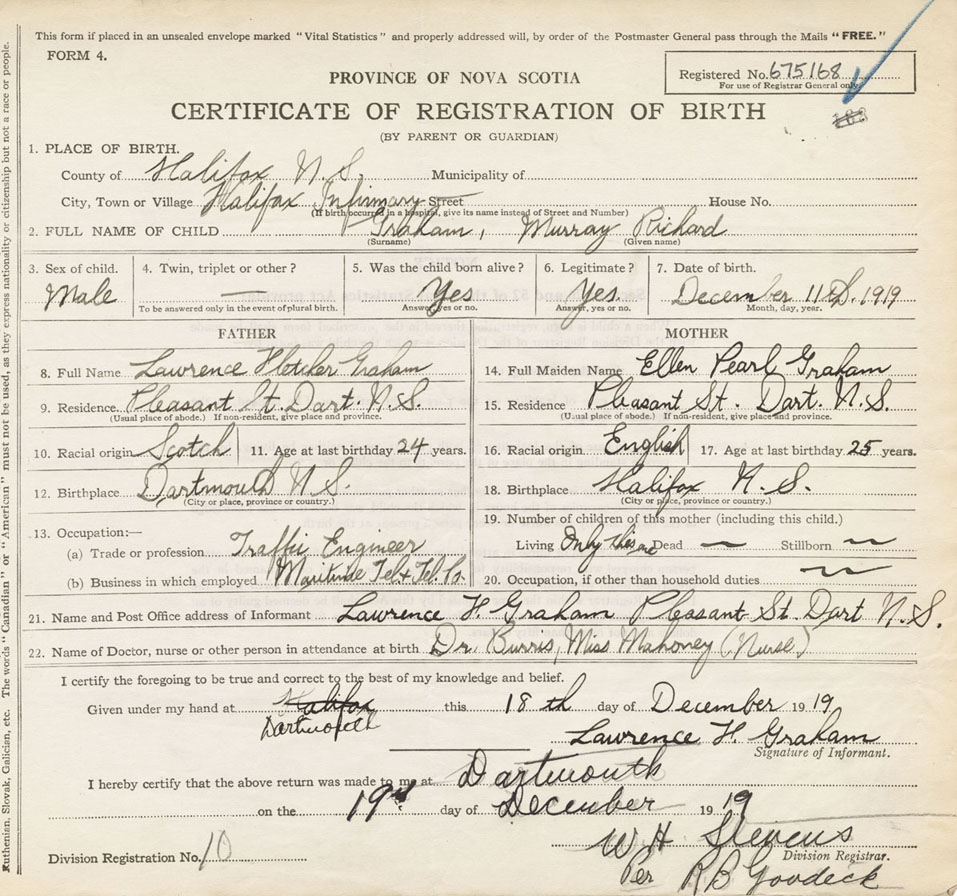 This form if placed in an unsealed envelope marked "Vital Statistics" and properly addressed will, by order of the Postmaster General pass through the Mails "FREE."
FORM 4.
Registered No. 675168
For use of Registrar General only.
PROVINCE OF NOVA SCOTIA
CERTIFICATE OF REGISTRATION OF BIRTH
(BY PARENT OR GUARDIAN)
1. PLACE OF BIRTH.
County of Halifax N. S. Municipality of
City, Town or Village Halifax Infirmary Street House No.
(If birth occurred in a hospital, give its name instead of Street and Number)
2. FULL NAME OF CHILD Graham, Murray Richard
(Surname) (Given name)
3. Sex of child. 4. Twin, triplet or other? 5. Was the child born alive? 6. Legitimate? 7. Date of birth.
Male — Yes Yes. December 11th. 1919
To be answered only in the event of plural birth. Answer, yes or no. Answer, yes or no. Month, day, year.
FATHER
8. Full Name Lawrence Fletcher Graham
9. Residence Pleasant St. Dart. N.S.
(Usual place of abode.) If non-resident, give place and province.
10. Racial origin Scotch 11. Age at last birthday 24 years.
12. Birthplace Dartmouth N S.
(City or place, province or country.)
13. Occupation:—
(a) Trade or profession Traffic Engineer
(b) Business in which employed Maritime Tel & Tel. Co.
MOTHER
14. Full Maiden Name Ellen Pearl Graham
15. Residence Pleasant St. Dart. N.S.
(Usual place of abode.) If non-resident, give place and province.
16. Racial origin English 17. Age at last birthday 25 years.
18. Birthplace Halifax N. S.
(City or place, province or country.)
19. Number of children of this mother (including this child.)
Living Only this one Dead — Stillborn —
20. Occupation, if other than household duties —
21. Name and Post Office address of Informant Lawrence H. Graham Pleasant St. Dart N.S.
22. Name of Doctor, nurse or other person in attendance at birth Dr. Burris, Miss Mahoney (Nurse)
I certify the foregoing to be true and correct to the best of my knowledge and belief.
Given under my hand at Halifax this 18 th day of December 19 19
Dartmouth
Lawrence H. Graham
Signature of Informant.
I hereby certify that the above return was made to me at Dartmouth
on the 19th day of December 19 19
W H Stevens
Division Registrar.
Division Registration No. 10
Per R B Goodeck
Ruthenian, Slovak, Galician, etc. The words "Canadian" or "American" must not be used, as they express nationality or citizenship but not a race or people.